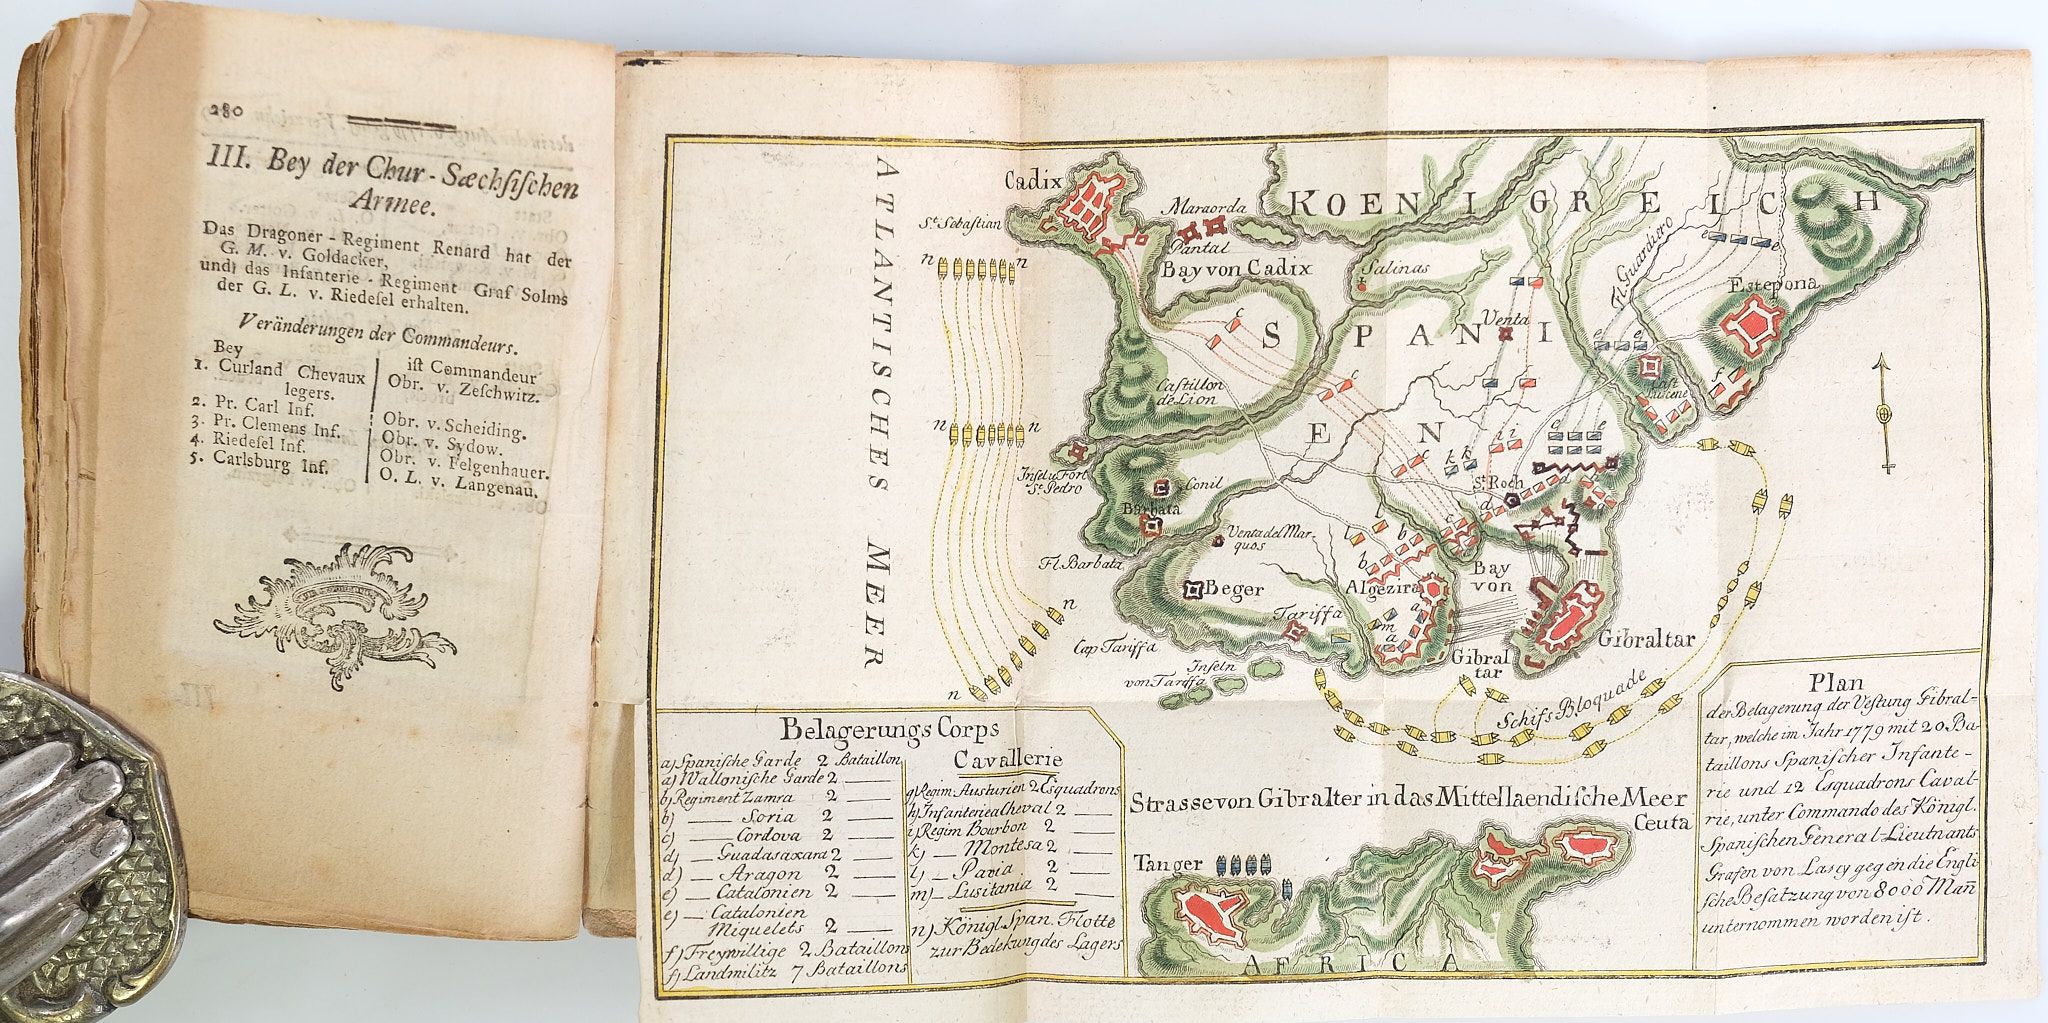 280
III. Bey der Chur-Sæchſiſchen
Armee.
Das Dragoner-Regiment Renard hat der
G. M. v. Goldacker,
und das Infanterie-Regiment Graf Solms
der G. L. v. Riedeſel erhalten.
Veränderungen der Commandeurs.
Bey
iſt Commandeur
1. Curland Chevaux
legers.
Obr. v. Zeſchwitz.
2. Pr. Carl Inf.
Obr. v. Scheiding.
3. Pr. Clemens Inf.
Obr. v. Sydow.
4. Riedeſel Inf.
Obr. v. Felgenhauer.
5. Carlsburg Inf.
O. L. v. Langenau.
ATLANTISCHES MEER
Cadix
St. Sebastian
Maraorda
Pantal
Bay von Cadix
KOENIGREICH
SPANIEN
Salinas
Venta
Fl. Guardiero
Estepona
Castillon
de Lion
Insel u Fort
St. Pedro
Conil
Barbata
Fl. Barbata
Venta del Mar-
quos
Beger
Tariffa
Cap Tariffa
Inseln
von Tariffa
Algezira
St. Roch
Bay
von
Gibral
tar
Gibraltar
Schifs Bloquade
n n
n n
n n
Belagerungs Corps
a) Spanische Garde 2 Bataillon
a) Wallonische Garde 2 ___
b) Regiment Zamra 2 ___
b) ___ Soria 2 ___
c) ___ Cordova 2 ___
d) ___ Guadasaxara 2 ___
d) ___ Aragon 2 ___
e) ___ Catalonien 2 ___
e) ___ Catalonien
Miquelets 2 ___
f) Freywillige 2 Bataillon
f) Landmilitz 7 Bataillons
Cavallerie
g) Regim. Austurien 2 Esquadrons
h) Infanterie a Cheval 2 ___
i) Regim Bourbon 2 ___
k) ___ Montesa 2 ___
l) ___ Pavia 2 ___
m) ___ Lusitania 2 ___
n) Königl. Span. Flotte
zur Bedekung des Lagers
Strasse von Gibralter in das Mittellaendiſche Meer
Ceuta
Tanger
AFRICA
Plan
der Belagerung der Veſtung Gibral-
tar, welche im Jahr 1779 mit 20 Ba-
taillons Spanischer Infante-
rie und 12 Esquadrons Caval-
rie, unter Commando des Königl.
Spanischen General-Lieutnants
Grafen von Lascy gegen die Engli
ſche Besatzung von 8000 Mañ
unternommen worden iſt.